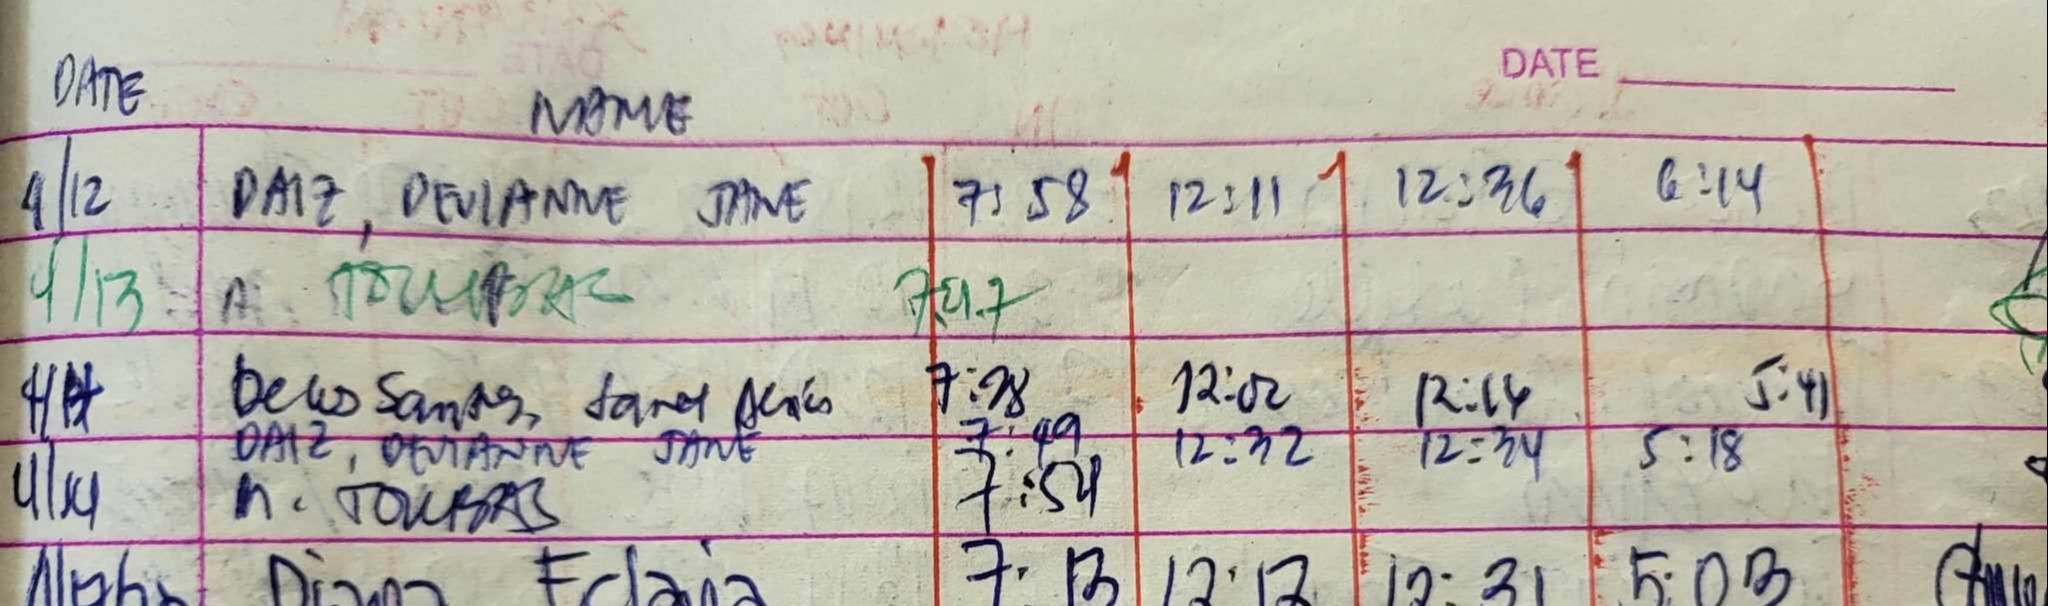 DATE
DATE NAME
4/12 DAIZ, DEVIANNE JANE 7:58 12:11 12:36 6:14
4/13 A. 7:47
4/14 Delos Santos, 7:38 12:02 12:14 5:41
DAIZ, DEVIANNE JANE 7:49 12:32 12:34 5:18
4/14 A. 7:54
Diana 7:13 12:12 12:31 5:03